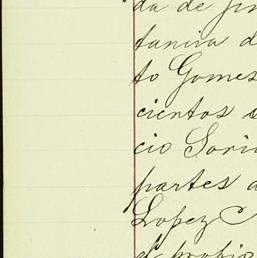 da de
taniva d
to Gomes
cientos
cio Soria
partes a
Lopez